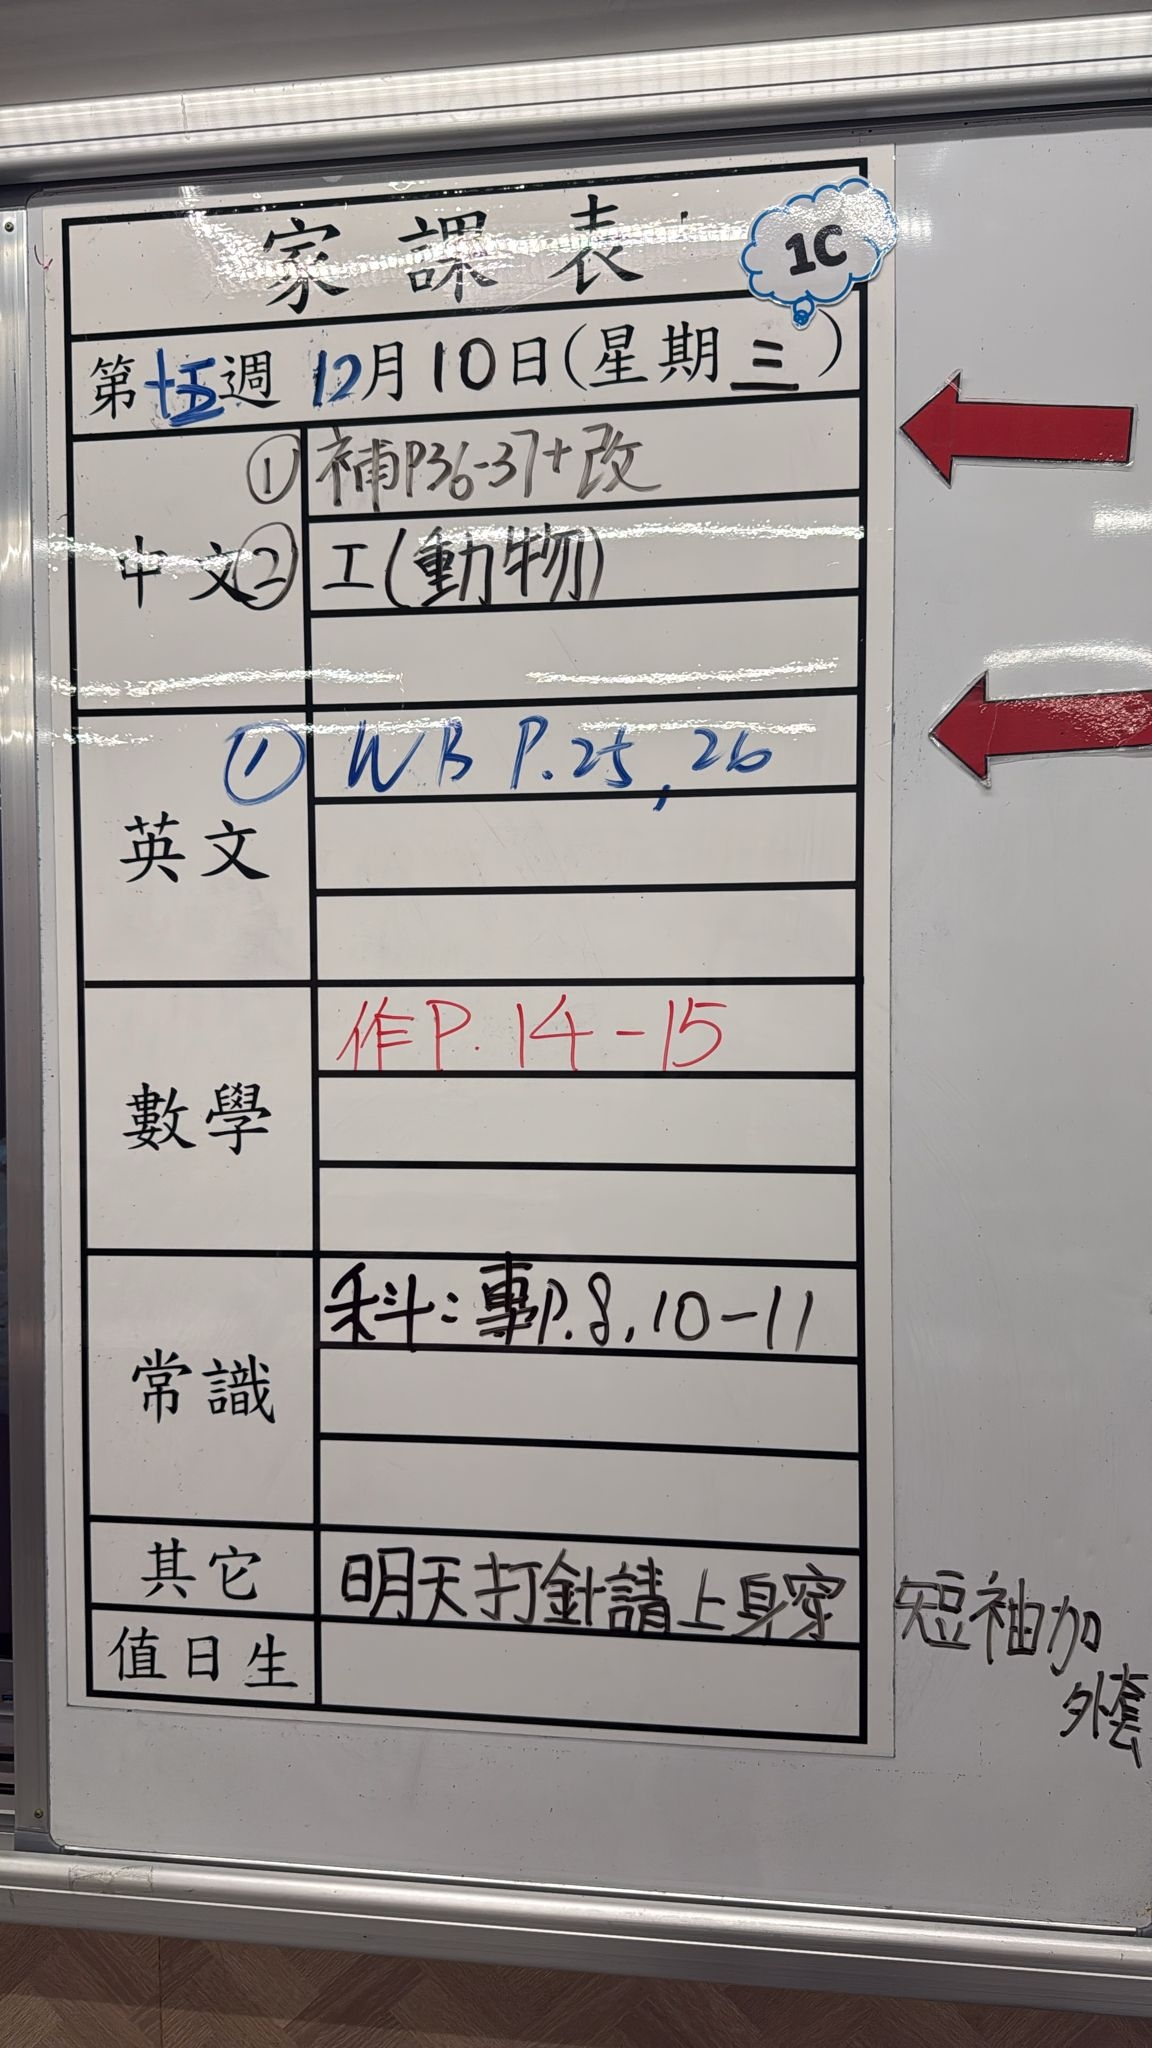 家課表
1C
第十五週 12月10日(星期三)
中文
① 補P36-37+改
② 工(動物)
英文
① WB P.25, 26
數學
作P. 14-15
常識
科：專P.8, 10-11
其它
明天打針請上身穿短袖加
外套
值日生